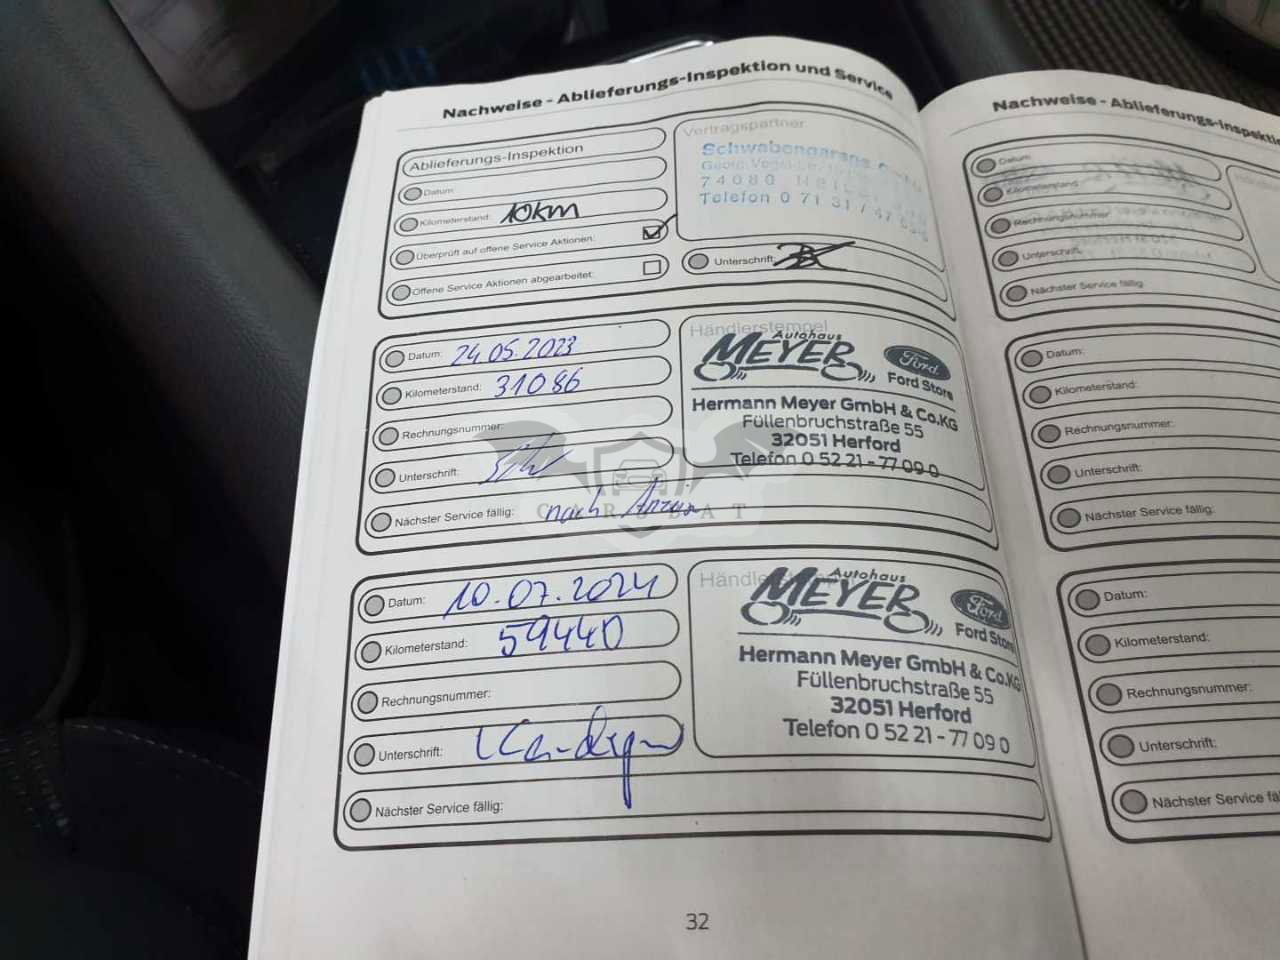 Nachweise - Ablieferungs-Inspektion und Service
Ablieferungs-Inspektion
Datum:
Kilometerstand: 10km
Überprüft auf offene Service Aktionen:
Offene Service Aktionen abgearbeitet:
Vertragspartner
Schwabengarage
74080
Telefon 0 71 31 /
Unterschrift:
Datum: 24.05.2023
Kilometerstand: 31086
Rechnungsnummer:
Unterschrift:
Nächster Service fällig: nach
Händlerstempel
Autohaus
MEYER
Ford
Ford Store
Hermann Meyer GmbH & Co.KG
Füllenbruchstraße 55
32051 Herford
Telefon 0 52 21 - 77 09 0
CARSBAT
Datum: 10.07.2024
Kilometerstand: 59440
Rechnungsnummer:
Unterschrift:
Nächster Service fällig:
Autohaus
MEYER
Ford
Ford Store
Hermann Meyer GmbH & Co.KG
Füllenbruchstraße 55
32051 Herford
Telefon 0 52 21 - 77 09 0
32
Nachweise - Ablieferungs-
Datum:
Kilometerstand
Rechnungsnummer
Unterschrift
Nächster Service fällig
Datum:
Kilometerstand:
Rechnungsnummer:
Unterschrift:
Nächster Service fällig:
Datum:
Kilometerstand:
Rechnungsnummer:
Unterschrift:
Nächster Service